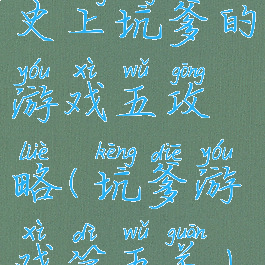 史上坑爹的
yóu xì wǔ gōng
游戏五攻
lüè kēng diē yóu
略(坑爹游
xì dì wǔ guān
戏第五关)